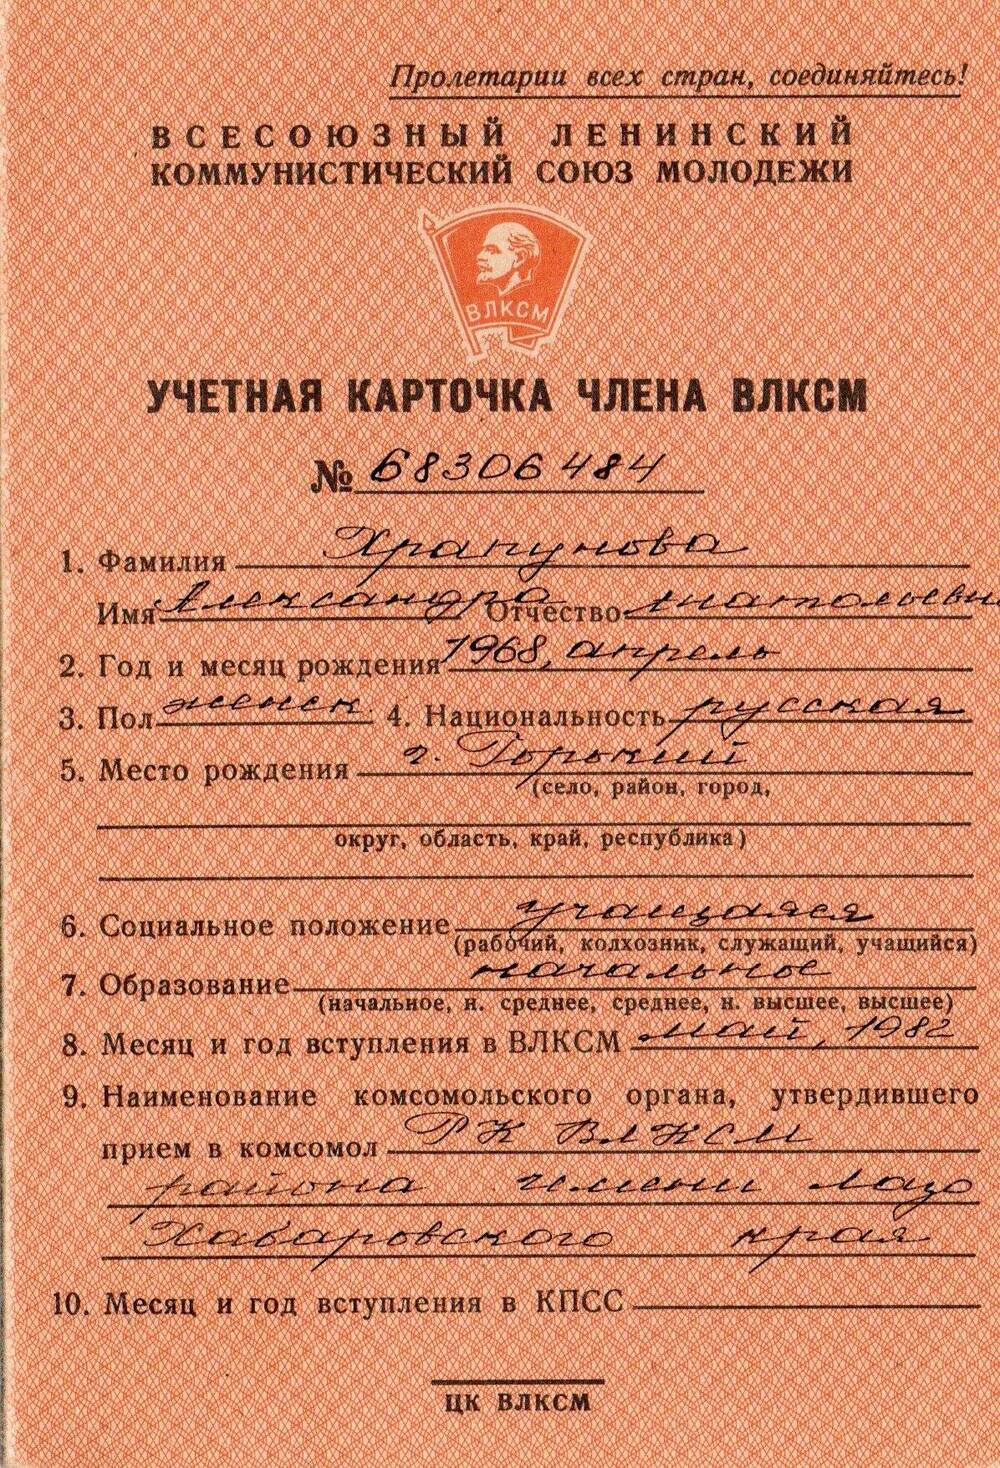 Пролетарии всех стран, соединяйтесь!
ВСЕСОЮЗНЫЙ ЛЕНИНСКИЙ
КОММУНИСТИЧЕСКИЙ СОЮЗ МОЛОДЕЖИ
ВЛКСМ
УЧЕТНАЯ КАРТОЧКА ЧЛЕНА ВЛКСМ
№ 68306484
1. Фамилия Храпунова
Имя Александра Отчество Анатольевн
2. Год и месяц рождения 1968, апрель
3. Пол женск. 4. Национальность русская
5. Место рождения г. Горький
(село, район, город,
округ, область, край, республика)
6. Социальное положение учащаяся
(рабочий, колхозник, служащий, учащийся)
7. Образование начальное
(начальное, н. среднее, среднее, н. высшее, высшее)
8. Месяц и год вступления в ВЛКСМ май, 1982
9. Наименование комсомольского органа, утвердившего
прием в комсомол РК ВЛКСМ
района имени Лазо
Хабаровского края
10. Месяц и год вступления в КПСС
ЦК ВЛКСМ